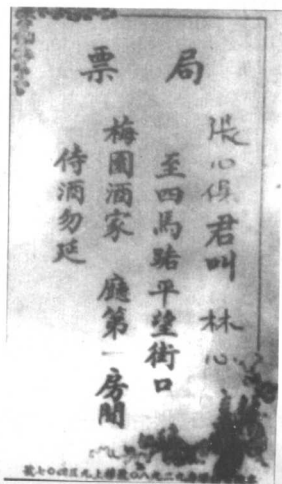 局票
張心俱君叫 林心
至四馬路平望街口
梅園酒家 廳第一房間
侍酒勿延